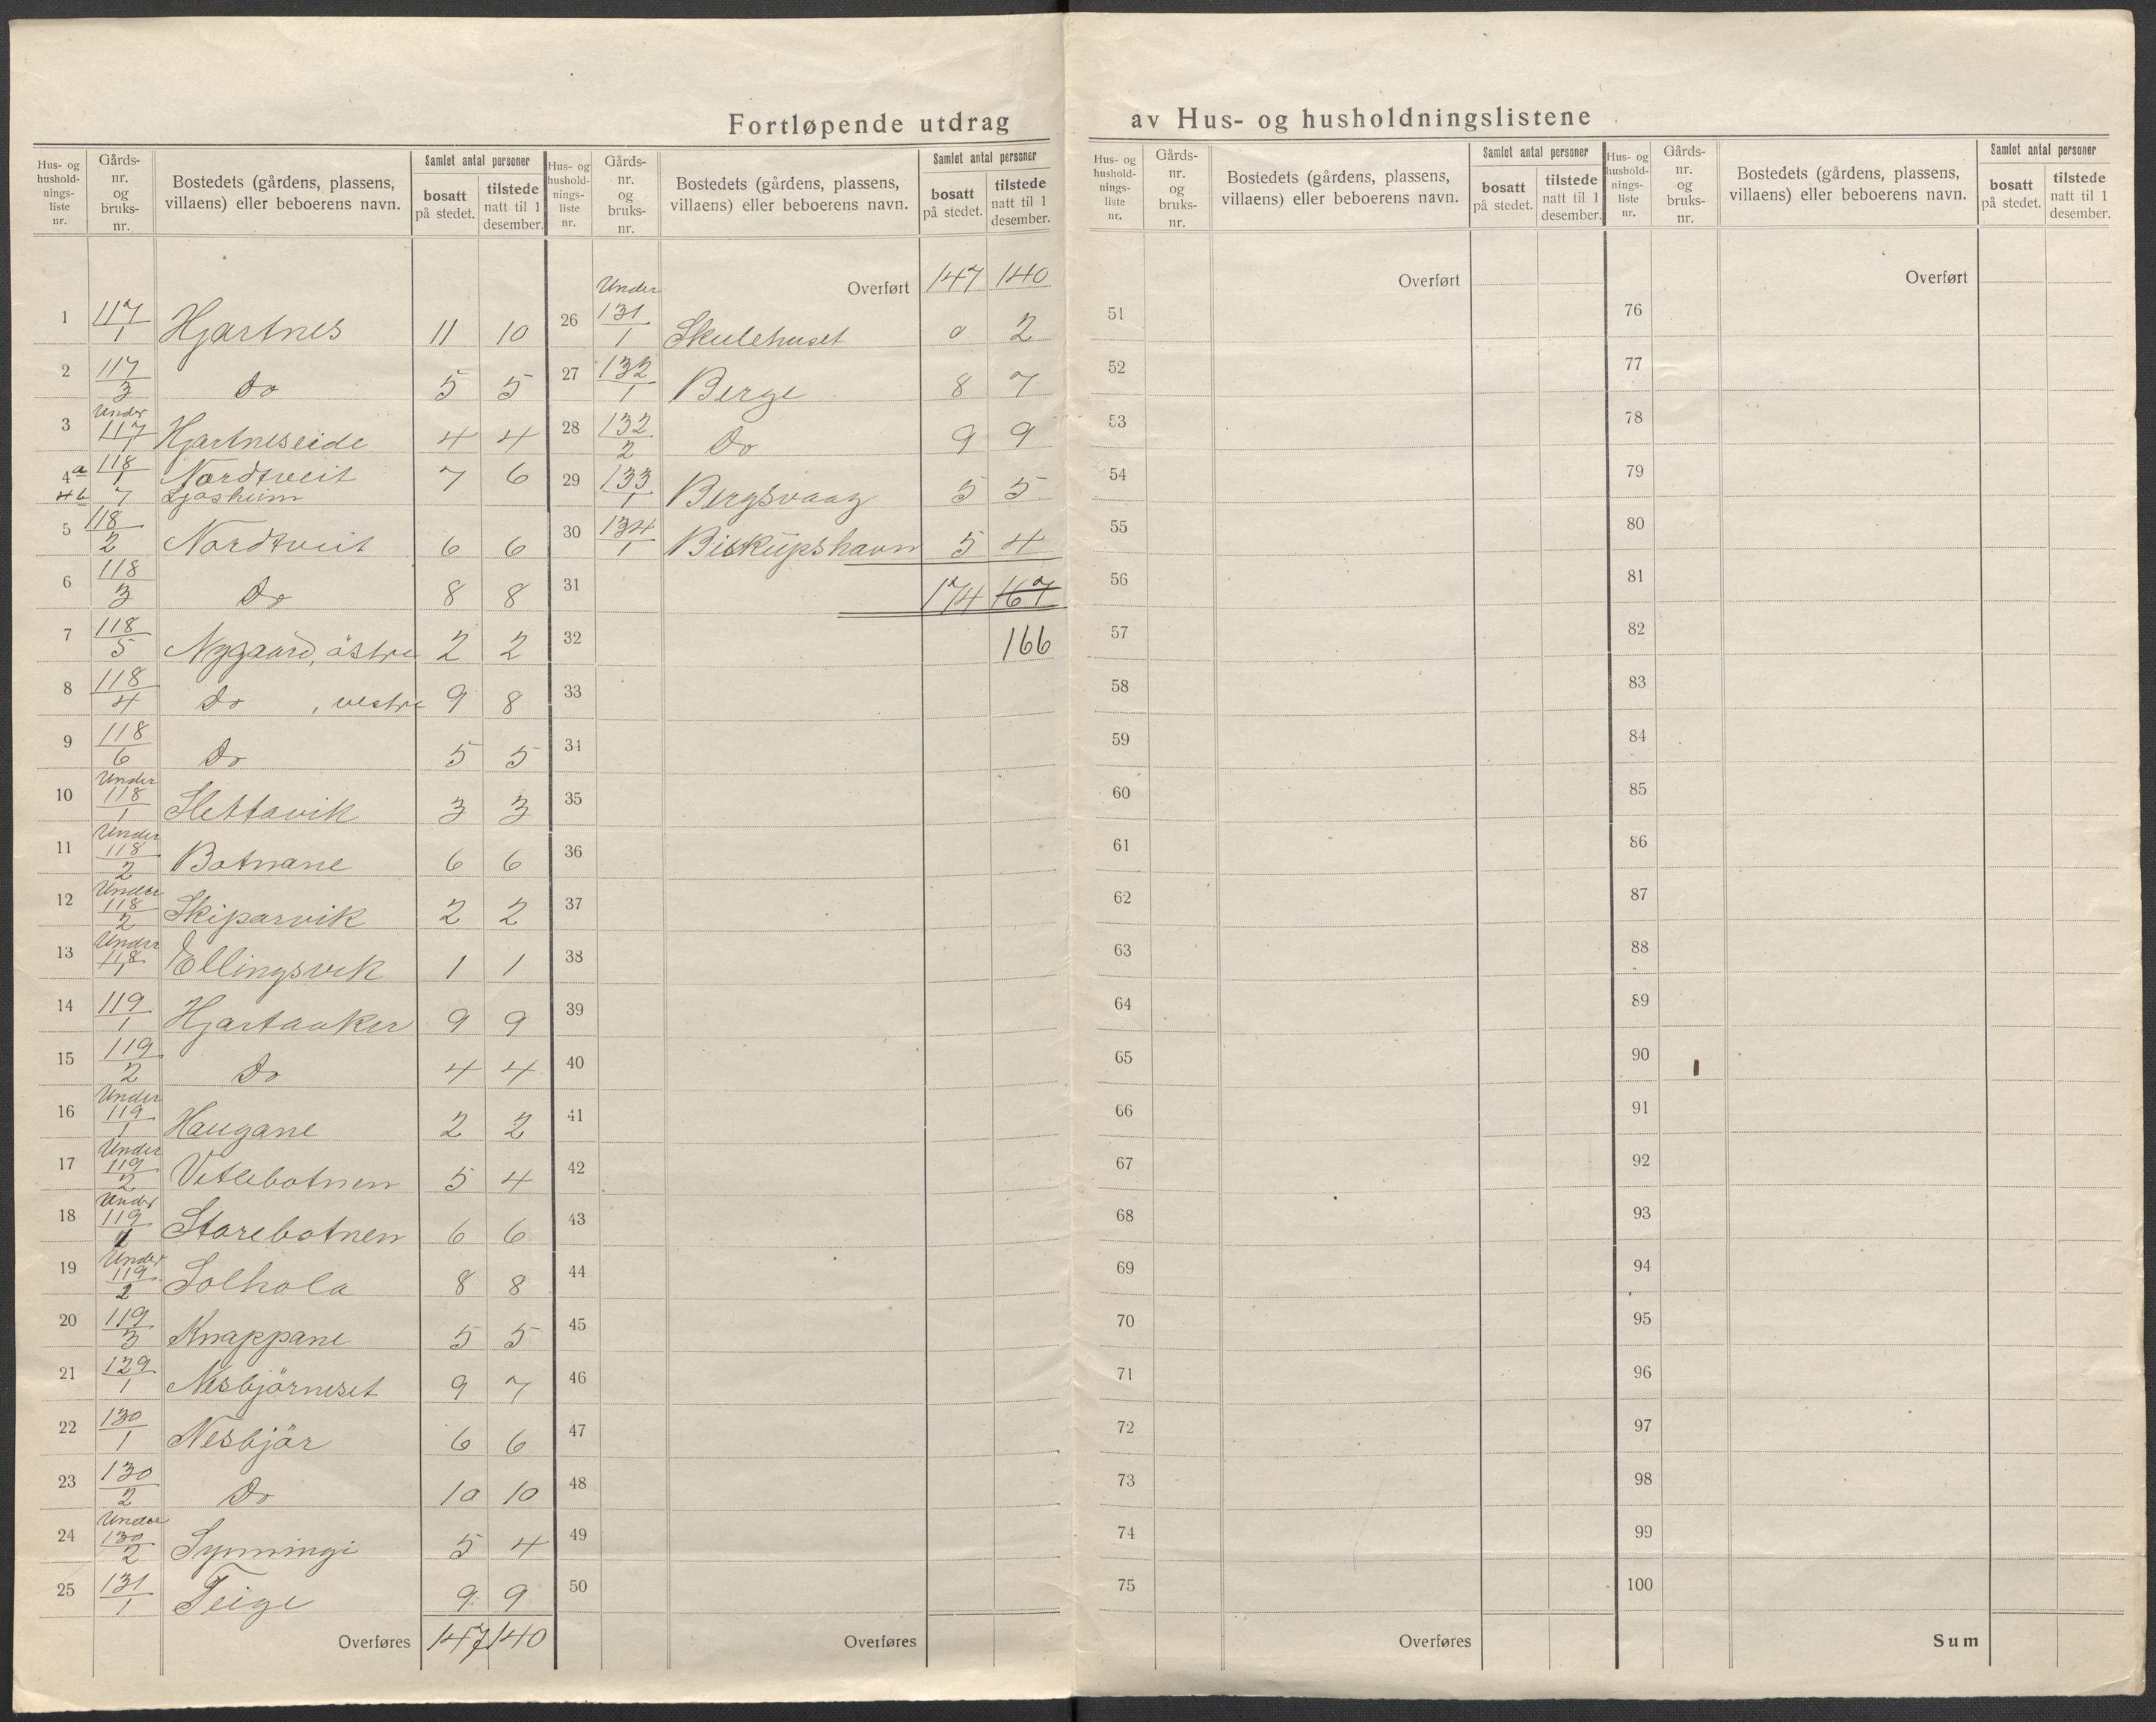 Fortløpende utdrag av Hus- og husholdningslistene
Hus- og husholdnings-liste nr. Gårds-nr. og bruks-nr. Bostedets (gårdens, plassens, villaens) eller beboerens navn. Samlet antal personer bosatt på stedet. tilstede natt til 1 desember.
1 117/1 Hjartnes 11 10
2 117/3 Do 5 5
3 Under 117/1 Hjartneseide 4 4
4a 118/1 Nordtveit 7 6
4b 7 Ljosheim
5 118/2 Nordtveit 6 6
6 118/3 Do 8 8
7 118/5 Nygaard, östre 2 2
8 118/4 Do , vestre 9 8
9 118/6 Do 5 5
10 Under 118/1 Slettavik 3 3
11 Under 118/2 Botnane 6 6
12 Under 118/2 Skiparvik 2 2
13 Under 118/1 Ellingsvik 1 1
14 119/1 Hjartaaker 9 9
15 119/2 Do 4 4
16 Under 119/1 Haugane 2 2
17 Under 119/2 Vetlebotnen 5 4
18 Under 119/1 Storebotnen 6 6
19 Under 119/2 Solhola 8 8
20 119/3 Knappane 5 5
21 129/1 Nesbjörneset 9 7
22 130/1 Nesbjör 6 6
23 130/2 Do 10 10
24 Under 130/2 Synningi 5 4
25 131/1 Teige 9 9
Overføres 147 140
Hus- og husholdnings-liste nr. Gårds-nr. og bruks-nr. Bostedets (gårdens, plassens, villaens) eller beboerens navn. Samlet antal personer bosatt på stedet. tilstede natt til 1 desember.
Overført 147 140
26 Under 131/1 Skulehuset 0 2
27 132/1 Berge 8 7
28 132/2 Do 9 9
29 133/1 Bergsvaag 5 5
30 134/1 Biskupshavn 5 4
31 174 167
32 166
33
34
35
36
37
38
39
40
41
42
43
44
45
46
47
48
49
50
Overføres
Hus- og husholdnings-liste nr. Gårds-nr. og bruks-nr. Bostedets (gårdens, plassens, villaens) eller beboerens navn. Samlet antal personer bosatt på stedet. tilstede natt til 1 desember.
Overført
51
52
53
54
55
56
57
58
59
60
61
62
63
64
65
66
67
68
69
70
71
72
73
74
75
Overføres
Hus- og husholdnings-liste nr. Gårds-nr. og bruks-nr. Bostedets (gårdens, plassens, villaens) eller beboerens navn. Samlet antal personer bosatt på stedet. tilstede natt til 1 desember.
Overført
76
77
78
79
80
81
82
83
84
85
86
87
88
89
90
91
92
93
94
95
96
97
98
99
100
Sum